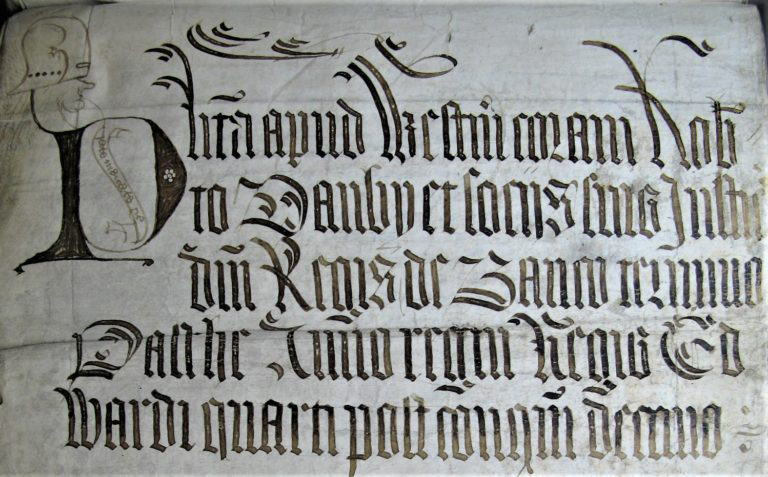 Pl̄ita apud Westm̄ coram Rob̄
to Danby et socijs suis Justic̄
dn̄i Regis de Banco termino
Pasche Anno regni Regis Ed
wardi quarti post conqm̄ decimo